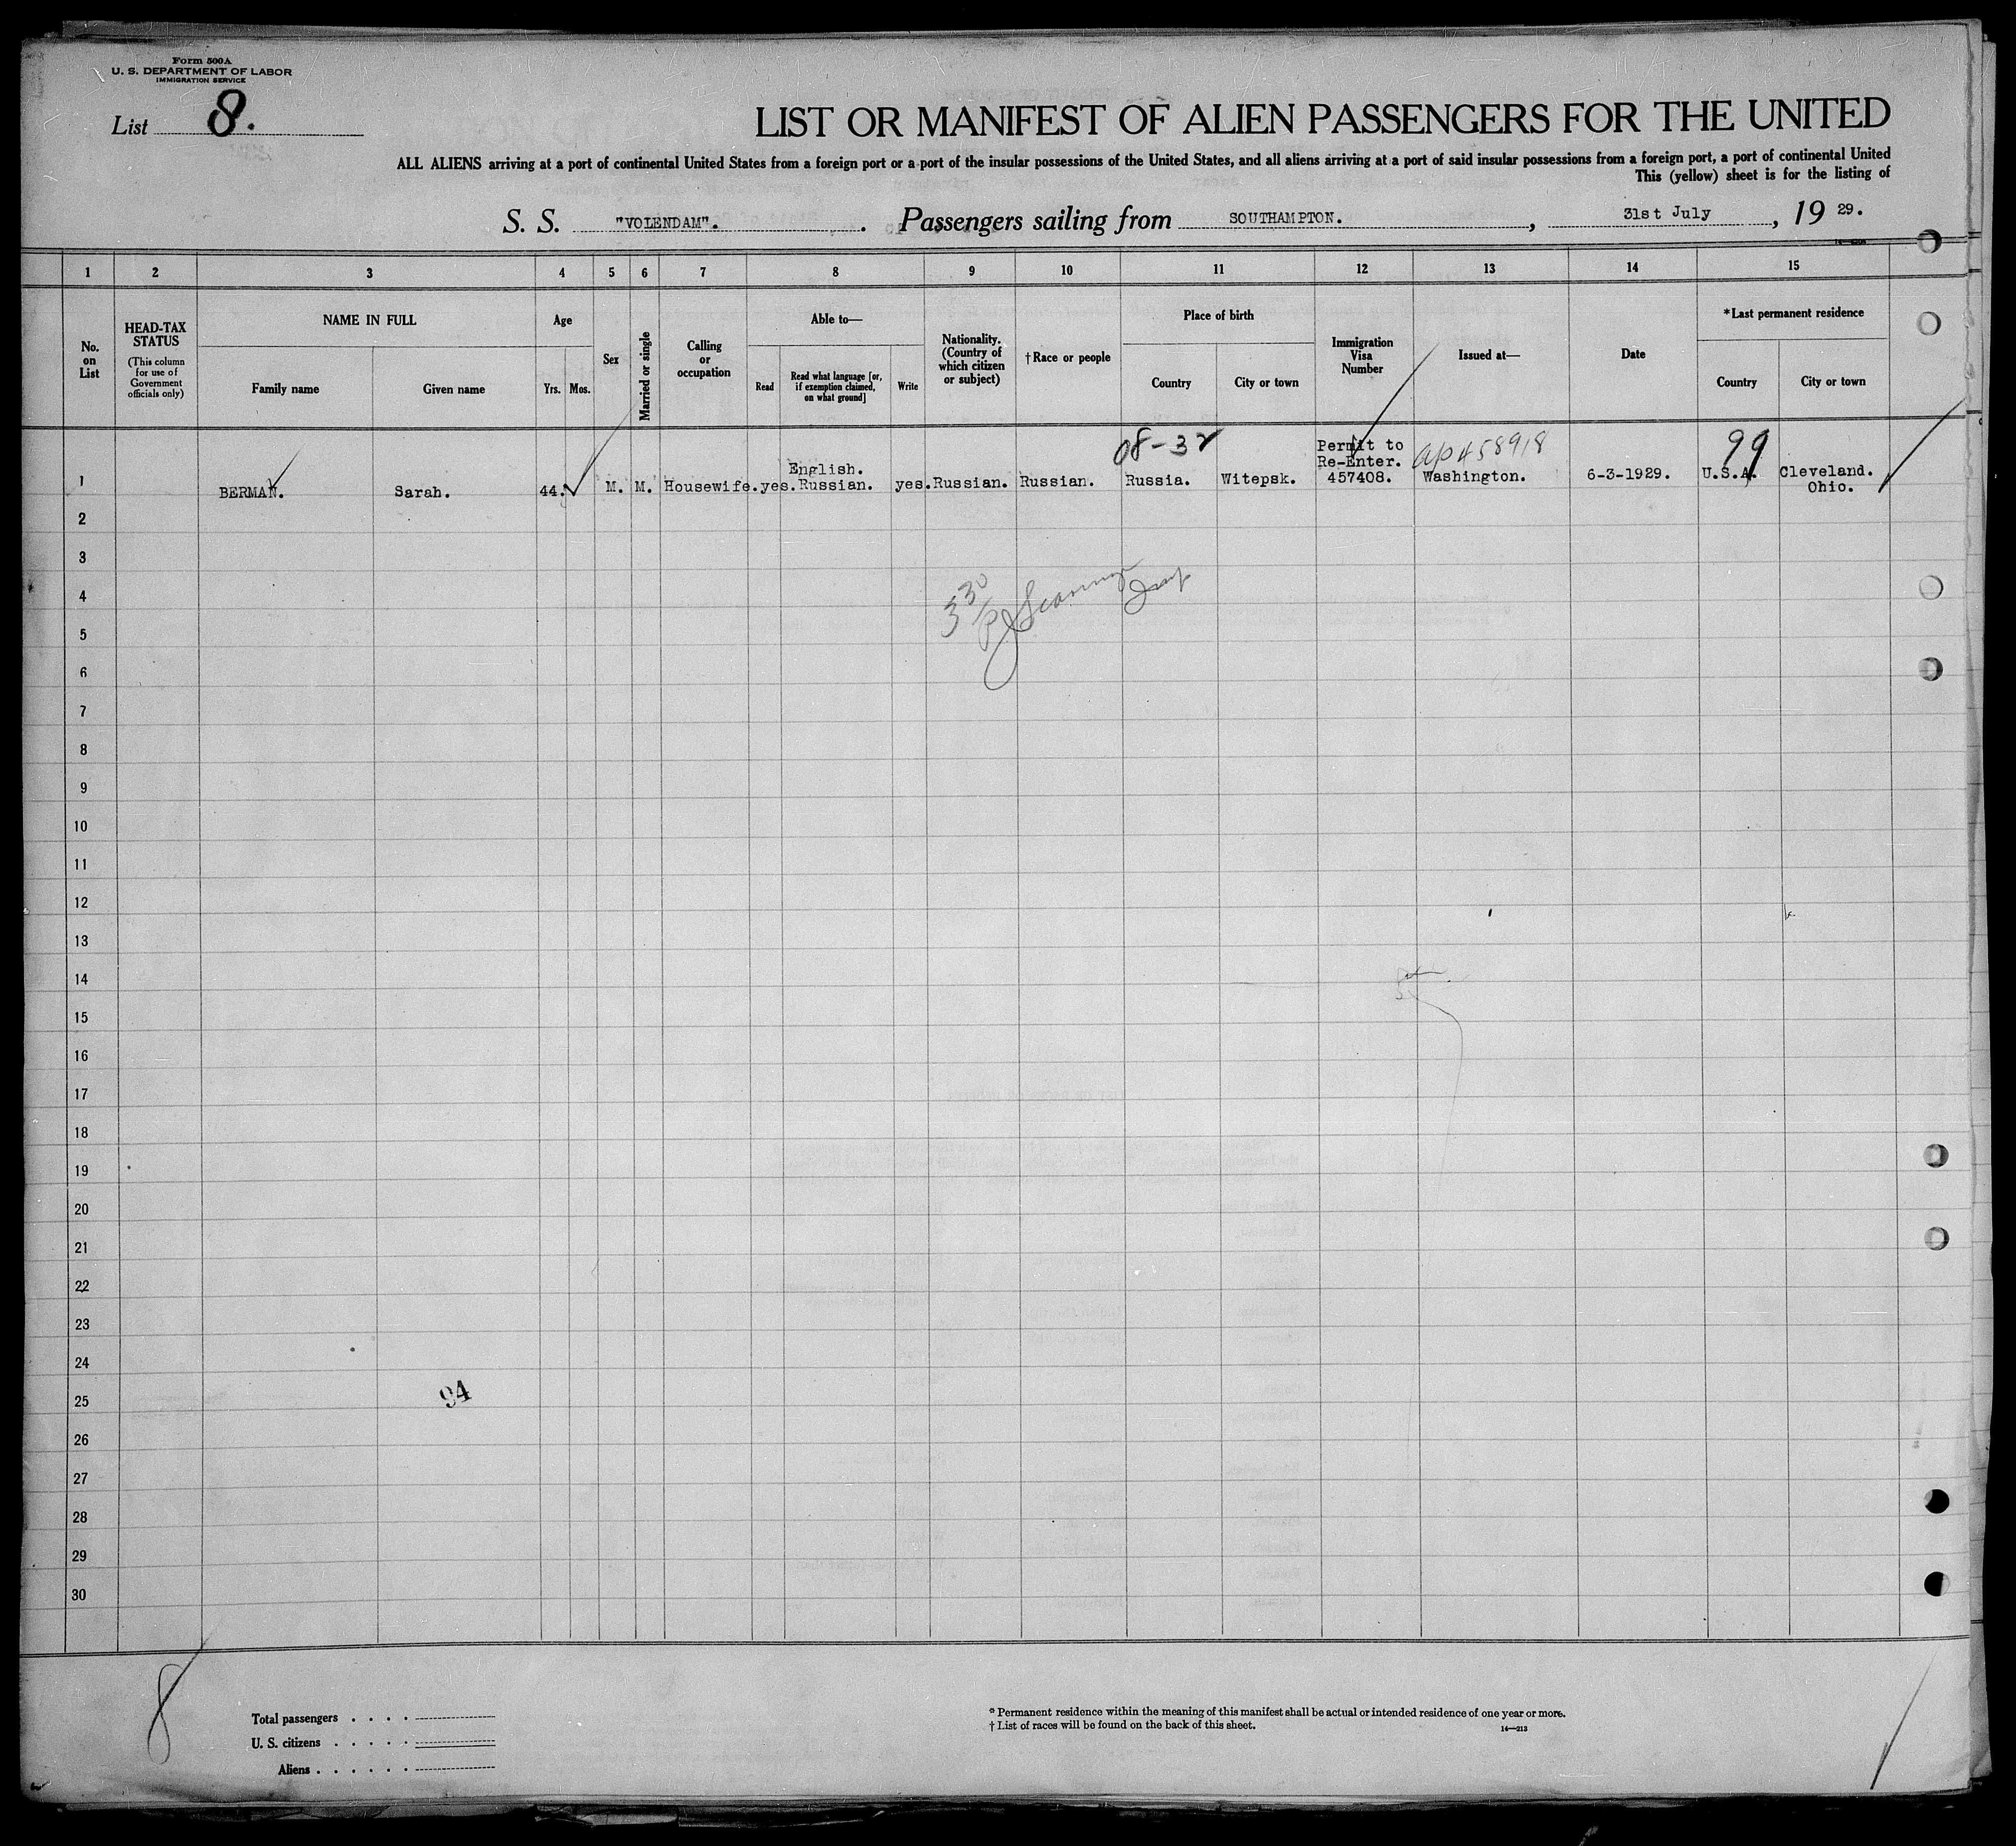 Form 500A
U. S. DEPARTMENT OF LABOR
IMMIGRATION SERVICE
List 8.
LIST OR MANIFEST OF ALIEN PASSENGERS FOR THE UNITED
ALL ALIENS arriving at a port of continental United States from a foreign port or a port of the insular possessions of the United States, and all aliens arriving at a port of said insular possessions from a foreign port, a port of continental United
This (yellow) sheet is for the listing of
S. S. "VOLENDAM". Passengers sailing from SOUTHAMPTON. , 31st July , 19 29.
1 2 3 4 5 6 7 8 9 10 11 12 13 14 15
No. on List
HEAD-TAX STATUS
(This column for use of Government officials only)
NAME IN FULL
Family name
Given name
Age
Yrs. Mos.
Sex
Married or single
Calling or occupation
Able to—
Read
Read what language [or, if exemption claimed, on what ground]
Write
Nationality. (Country of which citizen or subject)
†Race or people
Place of birth
Country
City or town
Immigration Visa Number
Issued at—
Date
*Last permanent residence
Country
City or town
08-32 Permit to ap458918 99
English. Re-Enter. Cleveland.
1 BERMAN. Sarah. 44. M. M. Housewife. yes. Russian. yes. Russian. Russian. Russia. Witepsk. 457408. Washington. 6-3-1929. U.S.A. Ohio.
2
3
4
5
6
7
8
9
10
11
12
13
14
15
16
17
18
19
20
21
22
23
24
94
25
26
27
28
29
30
8
Total passengers . . . .
U. S. citizens . . . . .
Aliens . . . . . .
* Permanent residence within the meaning of this manifest shall be actual or intended residence of one year or more.
† List of races will be found on the back of this sheet. 14—213